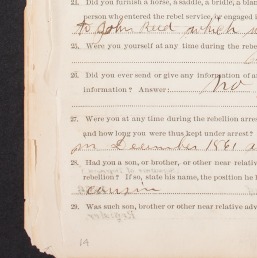 24. Did you furnish a horse, a saddle, a bridle, a blank
person who entered the rebel service, or engaged i
to John Reed which w
25. Were you yourself at any time during the rebel
26. Did you ever send or give any information of a
information? Answer: no
27. Were you at any time during the rebellion arre
and how long you were thus kept under arrest?
in December 1861 a
28. Had you a son, brother, or other near relative
rebellion? If so, state his name, the position he h
cousin
29. Was such son, brother or other near relative adv
14